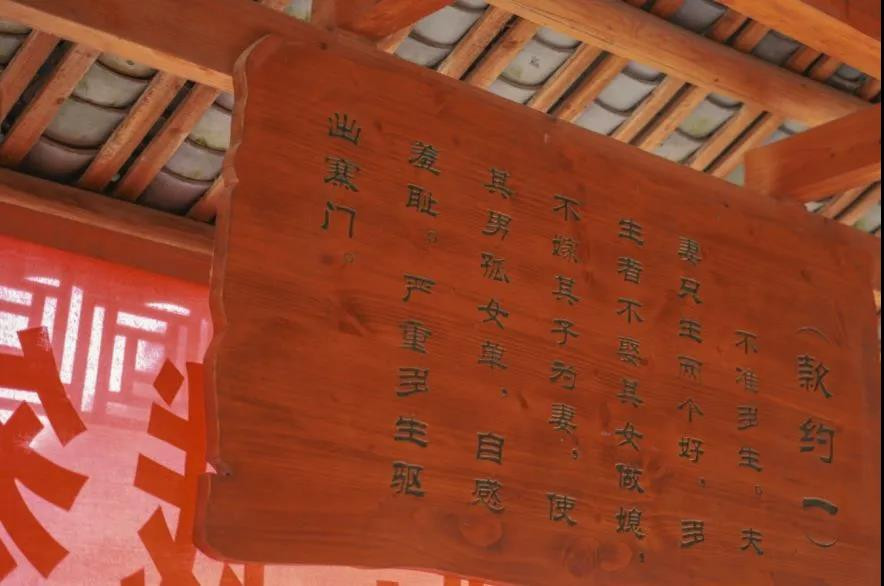 （款约一）
不准多生。夫
妻只生两个好，多
生者不娶其女做媳，
不嫁其子为妻，使
其男孤女单，自感
羞耻。严重多生驱
出寨门。